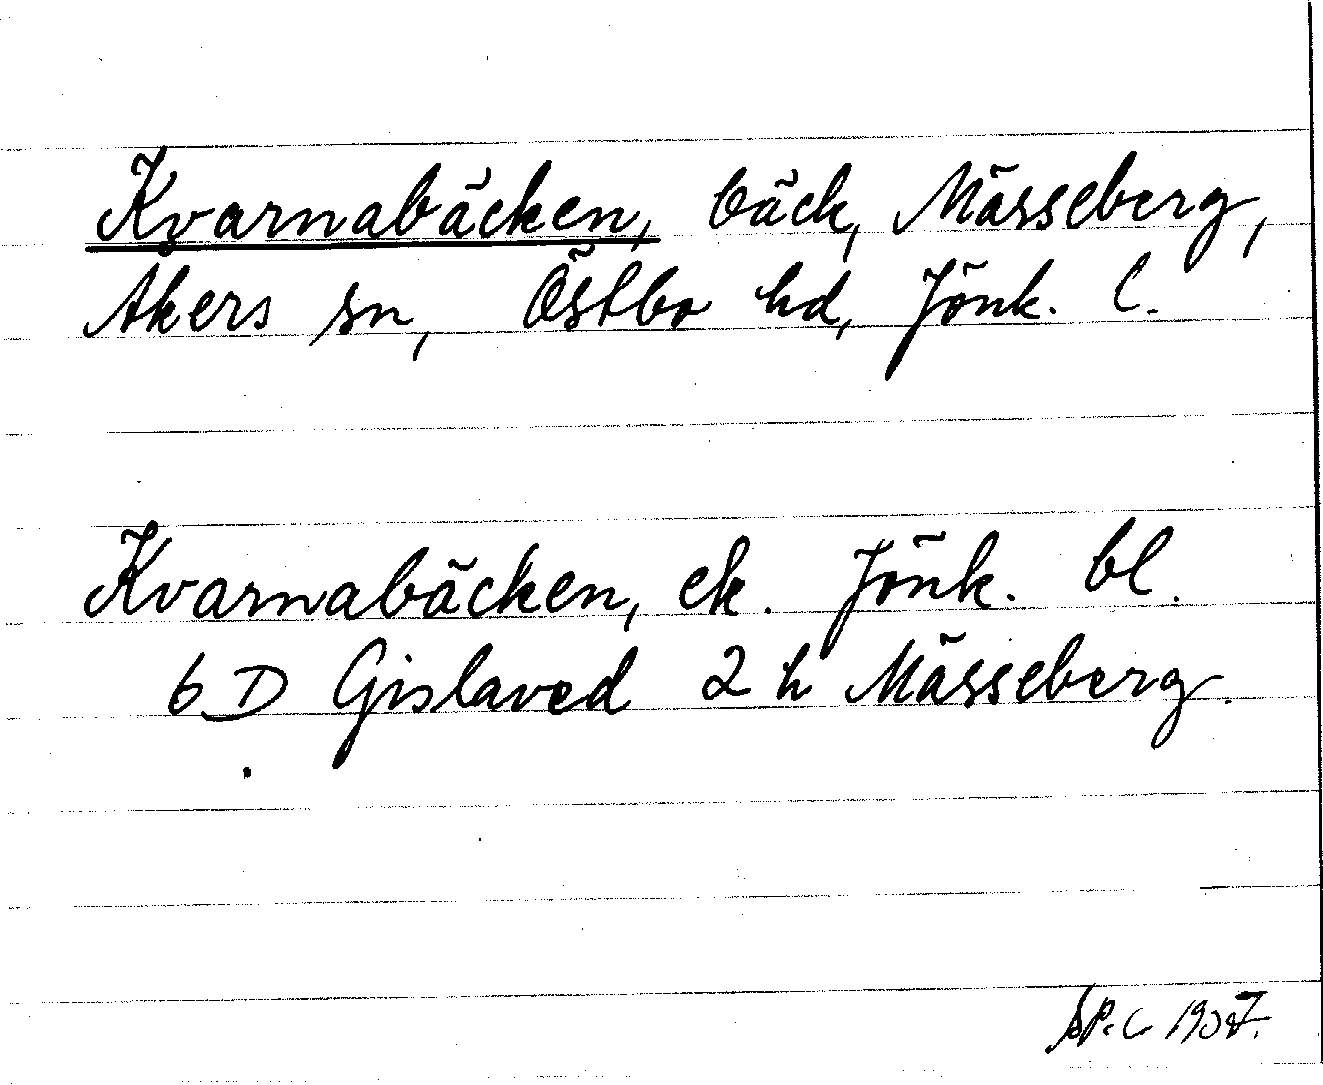 Kvarnabäcken, bäck, Mässeberg,
Åkers sn, Östbo hd, Jönk. l.
Kvarnabäcken, ek. Jönk. bl.
6 D Gislaved 2 h Mässeberg.